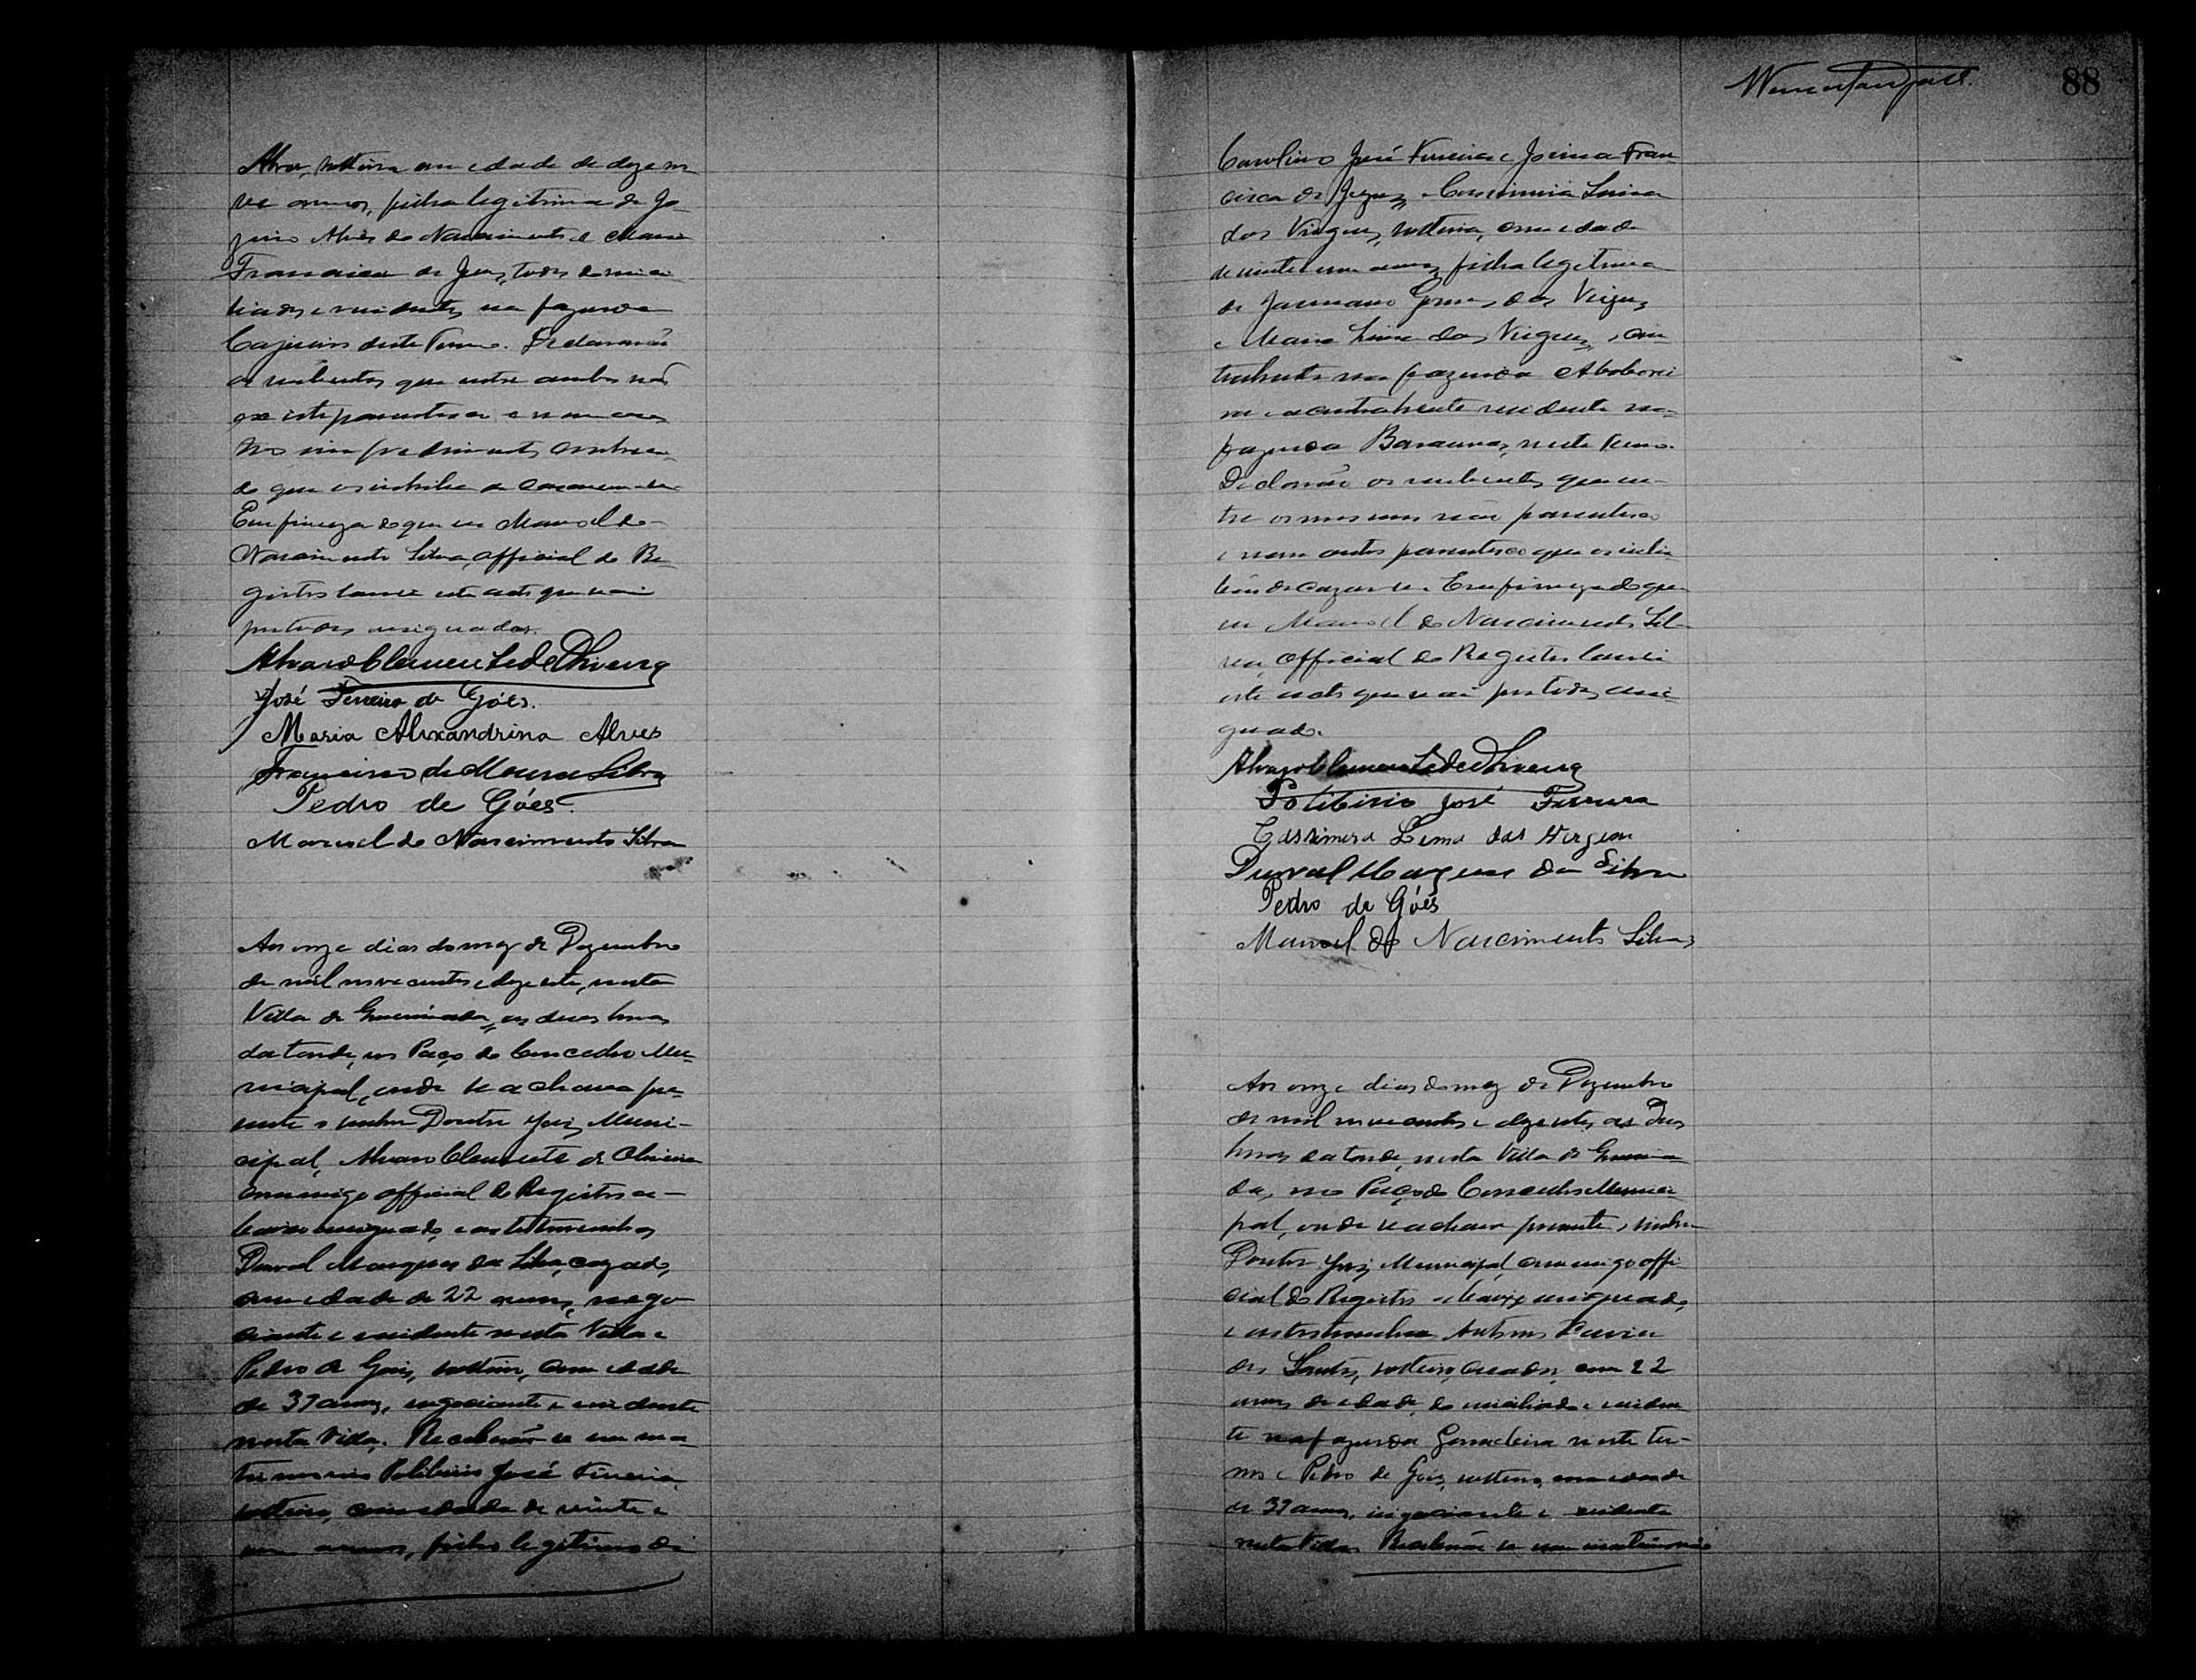 Alves, solteira com edade de dezeno
ve annos, filha legitima de Jo
Alves do Nascimento e Maria
Francisca de Jesus, todos domici
liados e residentes na fazenda
Cajueiro deste Termo. Declararão
os nubentes que entre ambos não
existe parentesco e nem ou
tro impedimento
do que os inhiba de casarem-se
Em firmeza do que eu Manoel do
Nascimento Silva, official do Re
gistro lancei este acto que vai
por todos assignados.
Alvaro Clemente de Oliveira
José Ferreira de Góes.
Maria Alixandrina Alves
Francisco de Moura Silva
Pedro de Góes.
Manoel do Nascimento Silva
Aos onze dias do mez de Dezembro
de mil nove centos e dezesete, nesta
Villa de as duas horas
da tarde, no Paço do Concelho Mu-
nicipal, onde se achava pre-
sente o senhor Doutor Juiz Muni-
cipal, Alvaro Clemente de Oliveira
commigo official do Registro a-
baixo assignado, e as testemunhas
Durval Marques da Silva, cazado,
com edade de 22 annos, nego
ciante e residente nesta Villa e
Pedro de Góes, solteiro, com edade
de 37 annos, negociante e residente
nesta Villa. Receberão-se em ma-
trimonio Polibirio José Ferreira,
solteiro, com edade de vinte e
um annos, filho legitimo de
88
Carolino José Ferreira e Joanna Fran
cisca de Jezuz, e Cassimira Lima
das Virgens, solteira, com edade
de vinte e um annos, filha legitima
de Januario Gomes das Virgens
e Maria Lima das Virgens, o con
trahente na fazenda Aboborei
ra e a contrahente residente na
fazenda Baraunas, neste Termo.
Declarão os nubentes que en-
tre os mesmos não parentesco
e nem outro parentesco que os inhi
bão de cazar-se. Em firmeza do que
eu Manoel do Nascimento Sil
va, official do Registro lancei
este acto que vai por todos assi
gnado.
Alvaro Clemente de Oliveira
Polibirio José Ferreira
Cassimira Lima das Virgem
Durval Marques da Silva
Pedro de Góes
Manoel do Nascimento Silva
Aos onze dias do mez de Dezembro
de mil nove centos e dezesete, as duas
horas da tarde, nesta Villa de
da, no Paço do Concelho Munici
pal, onde se achava presente o senhor
Doutor Juiz Municipal, commigo offi
cial do Registro abaixo assignado,
e as testemunhas Antonio Xavier
dos Santos, solteiro, creador, com 22
annos de edade, domiciliado e residen
te na fazenda neste ter-
mo e Pedro de Góes, solteiro, com edade
de 37 annos, negociante e residente
nesta Villa. Receberão-se em matrimonio